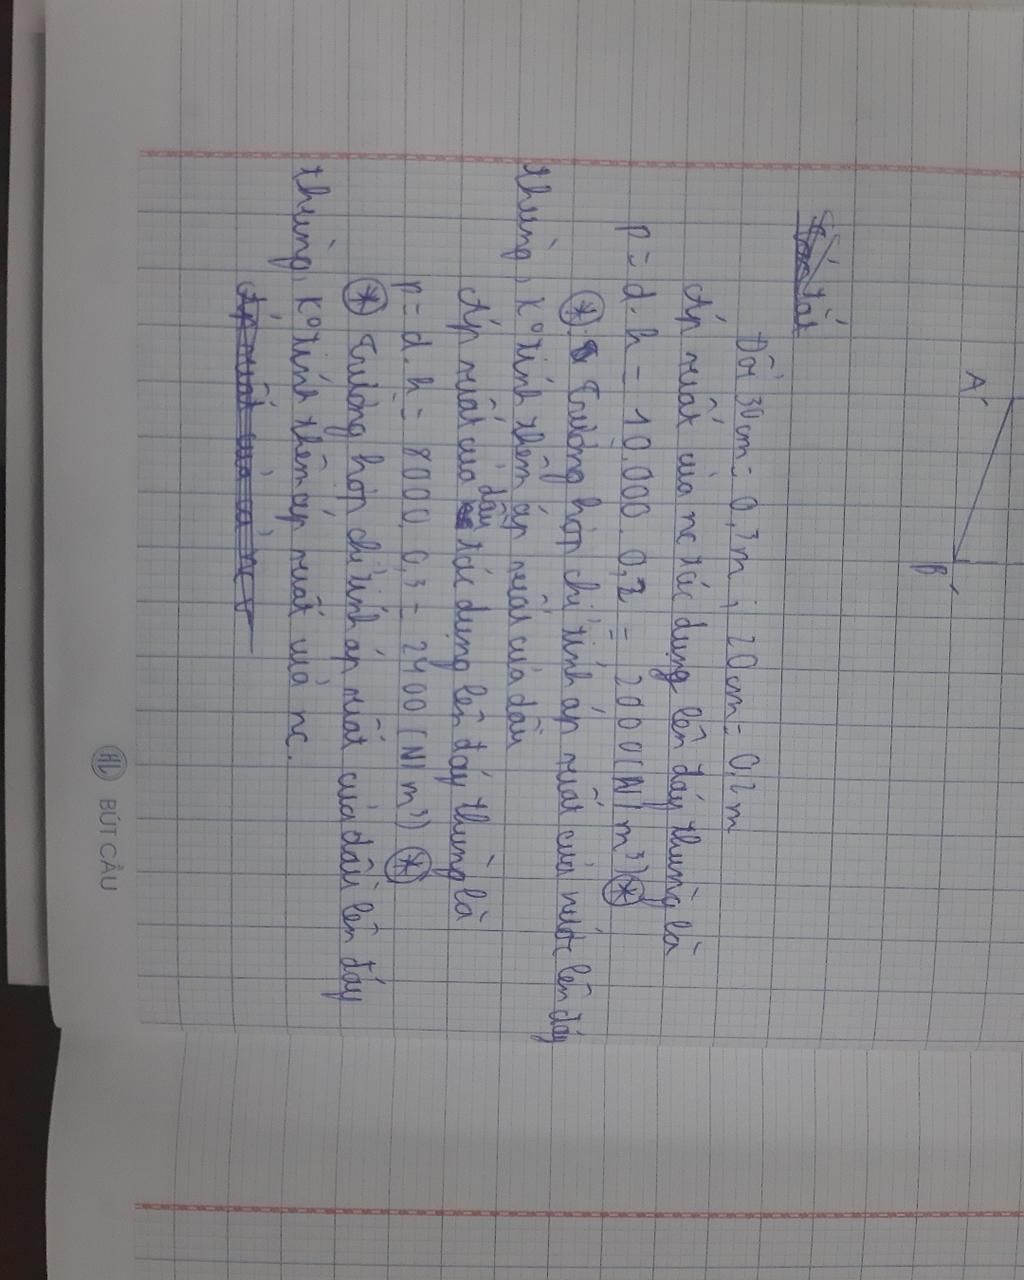 A'
B'
Tóm tắt
Đổi 30cm = 0,3m ; 20cm = 0,2m
Áp suất của nc tác dụng lên đáy thùng là
p = d.h = 10.000.0,2 = 2000(N/m³) *
* Trường hợp chỉ tính áp suất của nước lên đáy
thùng, k⁰ tính thêm áp suất của dầu
Áp suất của dầu tác dụng lên đáy thùng là
p = d.h = 8000.0,3 = 2400(N/m³) *
* Trường hợp chỉ tính áp suất của dầu lên đáy
thùng, k⁰ tính thêm áp suất của nc.
Áp suất của cả nc
HL BÚT CẦU